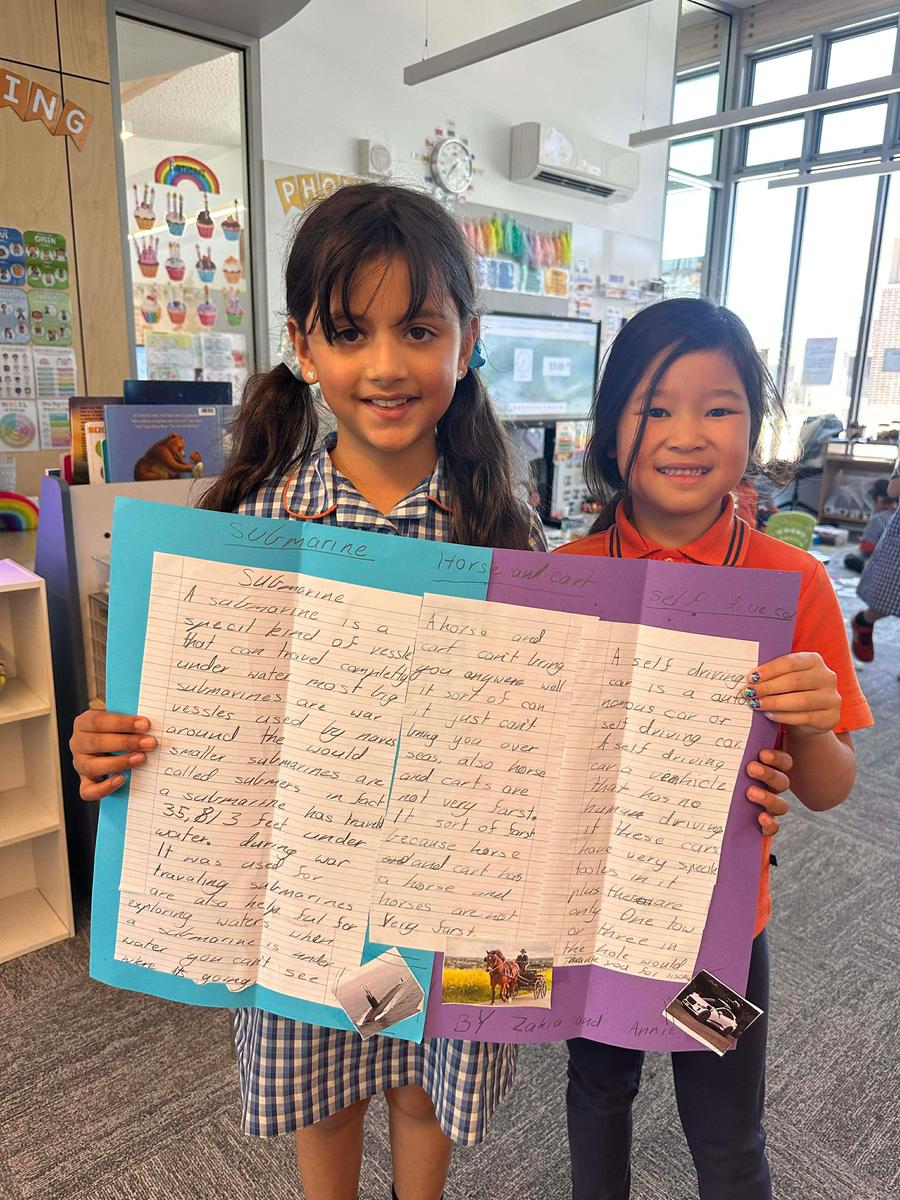 ING
PHO
SUBMARINE
Horse and cart
self dive car
Submarine
A submarine is a
specil kind of vessle
that can travel completly
under water most big
submarines are war
vessles used by naves
around the would
smaller submarines are
called submers in fact
a submarine has traveld
35,813 feet under
water. during war
It was used for
travaling submarines
are also help ful for
exploring waters when
a submarine is under
water you can't see
were it going
A horse and
cart can't bring
you anywere well
it sort of can
it just can't
bring you over
seas, also horse
and carts are
not very farst.
It sort of farst
because horse
and cart has
a horse and
horses are not
Very farst
A self driving
car is a auto
nomous car or
self driving car.
A self driving
car a vehicle
that has no
human driving
it these cars
have very specile
tooles in it
plus there are
only One tow
or three in
the hole would
Thank you for
BY Zakia and Annie